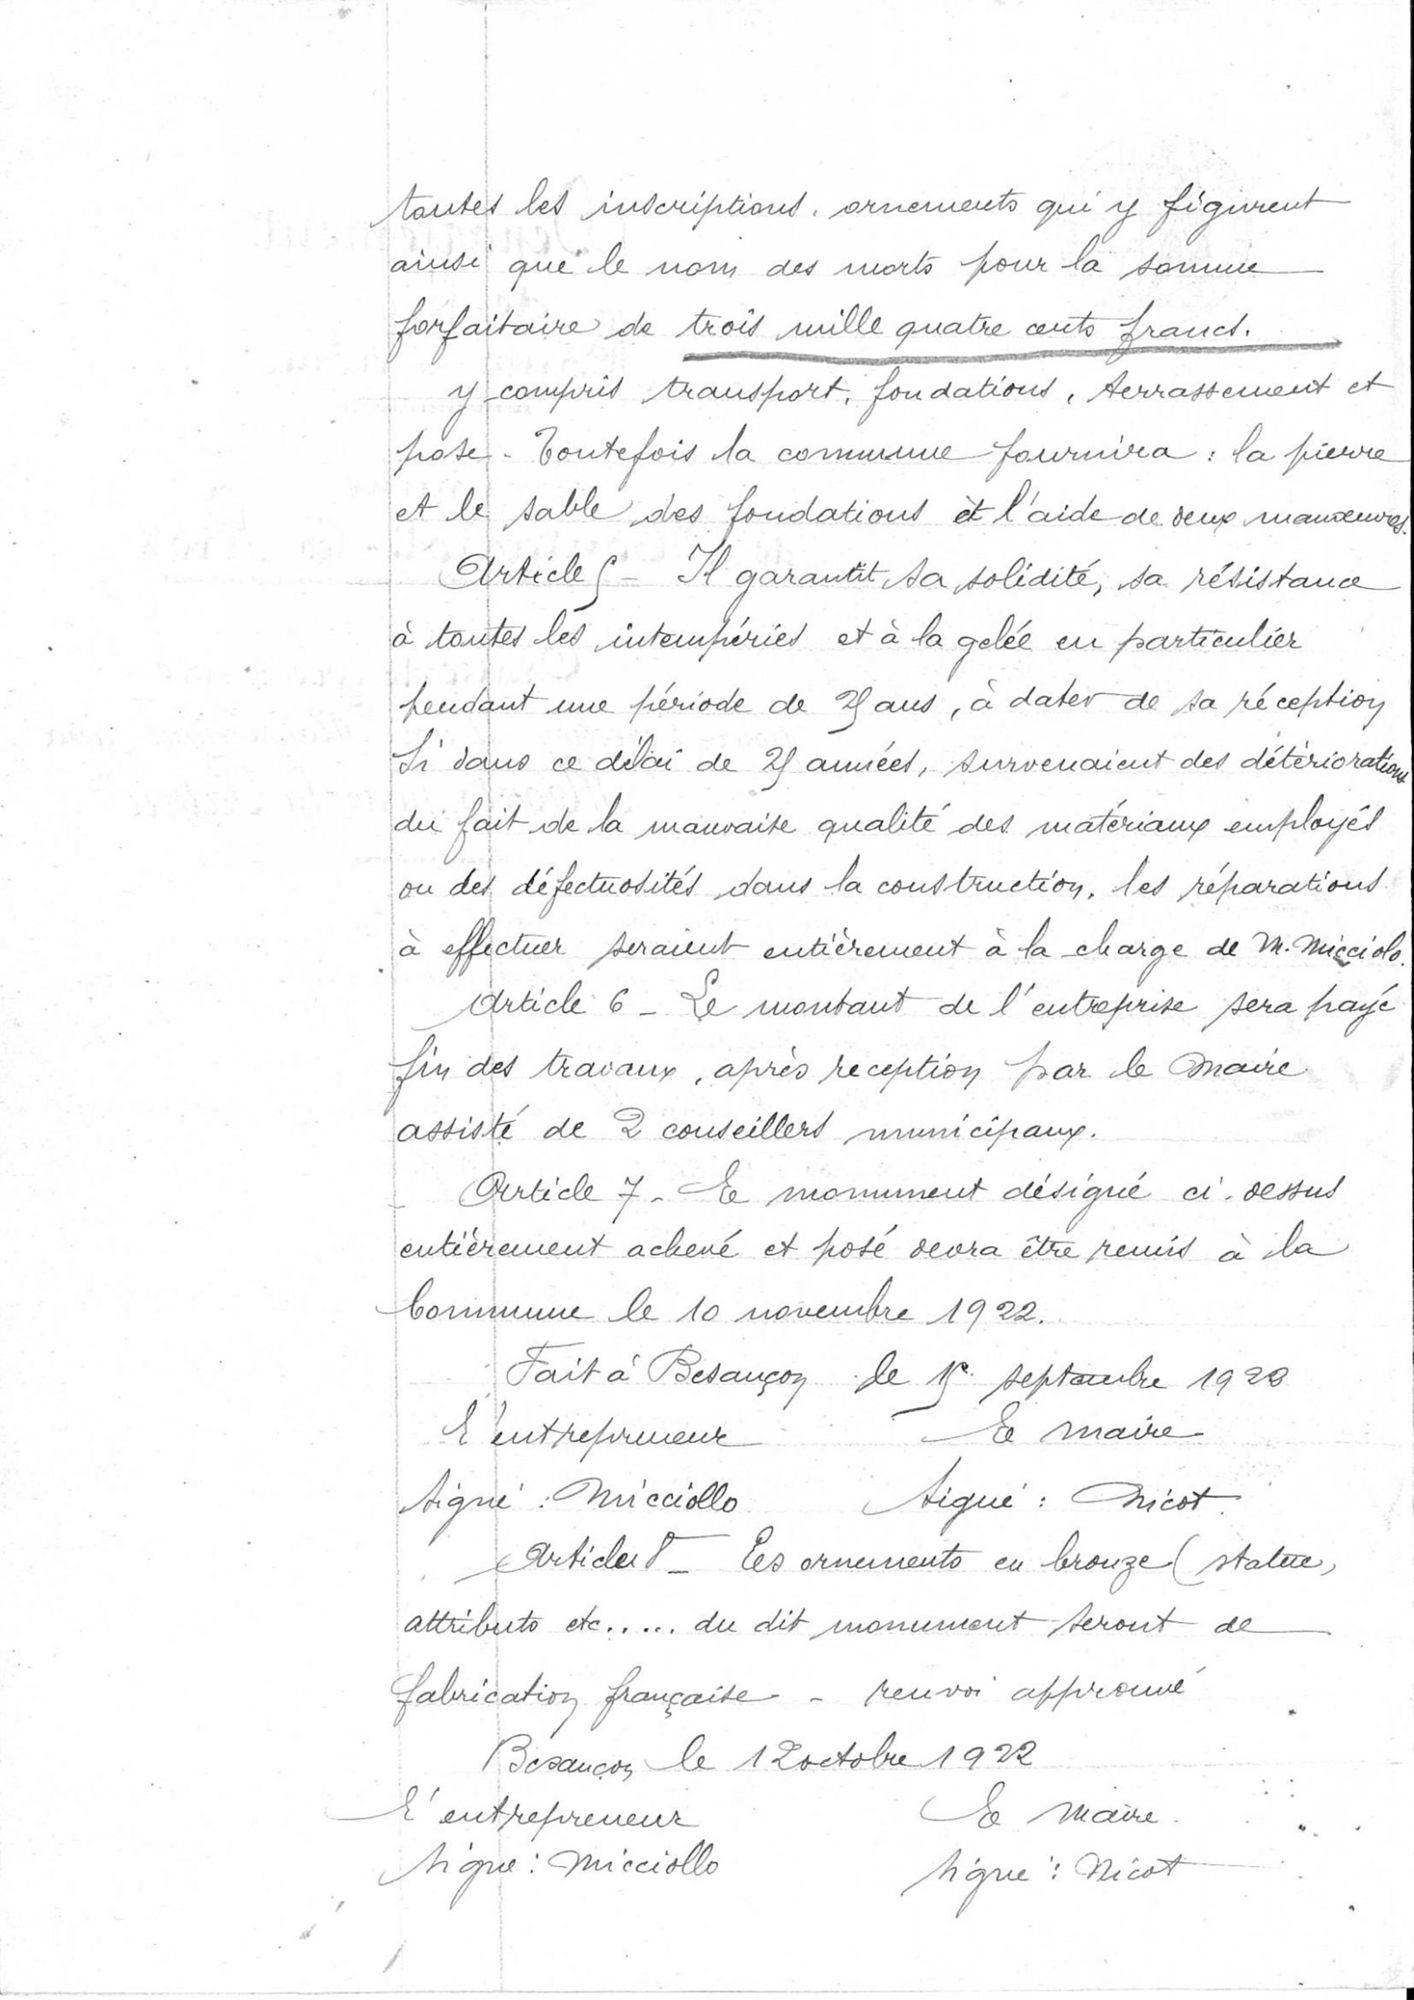 toutes les inscriptions, ornements qui y figurent
ainsi que le nom des morts pour la somme
forfaitaire de trois mille quatre cents francs.
y compris transport, fondations, terrassement et
pose - Toutefois la commune fournira : la pierre
et le sable des fondations et l'aide de deux manœuvres.
Article 5 - Il garantit sa solidité, sa résistance
à toutes les intempéries et à la gelée en particulier
pendant une période de 25 ans, à dater de sa réception
Si dans ce délai de 25 années, survenaient des détériorations
du fait de la mauvaise qualité des matériaux employés
ou des défectuosités dans la construction, les réparations
à effectuer seraient entièrement à la charge de M. Micciolo.
Article 6 - Le montant de l'entreprise sera payé
fin des travaux, après reception par le Maire
assisté de 2 conseillers municipaux.
Article 7 - Le monument désigné ci-dessus
entièrement achevé et posé devra être remis à la
Commune le 10 novembre 1922.
Fait à Besançon le 15 septembre 1922
L'entrepreneur Le Maire
Signé : Micciollo Signé : Nicot
Article 8 - Les ornements en bronze (statue,
attributs etc..... du dit monument seront de
fabrication française - renvoi approuvé
Besançon le 12 octobre 1922
L'entrepreneur Le Maire
Signé : Micciollo Signé : Nicot